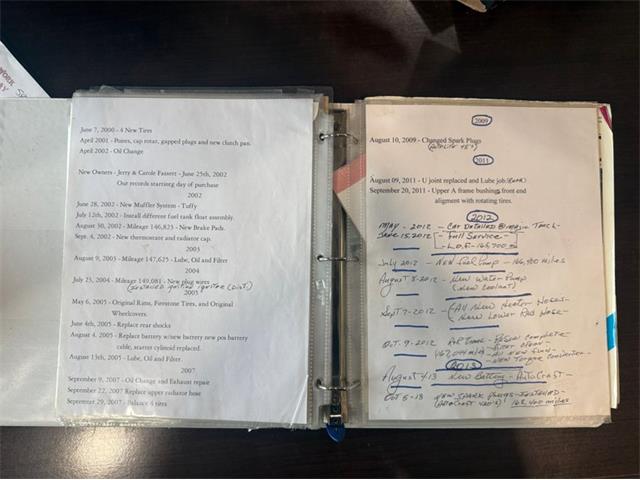 June 7, 2000 - 4 New Tires
April 2001 - Points, cap rotar, gapped plugs and new clutch pan.
April 2002 - Oil Change
New Owners - Jerry & Carole Fassert - June 25th, 2002
Our records starting day of purchase
2002
June 28, 2002 - New Muffler System - Tuffy
July 12th, 2002 - Install different fuel tank float assembly.
August 30, 2002 - Mileage 146,823 - New Brake Pads.
Sept. 4, 2002 - New thermostat and radiator cap.
2003
August 9, 2003 - Mileage 147,625 - Lube, Oil and Filter
2004
July 23, 2004 - Mileage 149,081 - New plug wires
2005
May 6, 2005 - Original Rims, Firestone Tires, and Original
Wheelcovers.
June 4th, 2005 - Replace rear shocks
August 4, 2005 - Replace battery w/new battery new pos battery
cable, starter cylinoid replaced.
August 13th, 2005 - Lube, Oil and Filter
2007
September 9, 2007 - Oil Change and Exhaust repair
September 22, 2007 Replace upper radiator hose
September 29, 2007 - Balance 4 tires
2009
August 10, 2009 - Changed Spark Plugs
2011
August 09, 2011 - U joint replaced and Lube job
September 20, 2011 - Upper A frame bushings front end
aligment with rotating tires.
2012
May - 2012 - Car Detailed
June 15, 2012 - Full Service -
L.O.F. - 165,700 m
July 2012 - New Fuel Pump - 166,900 miles
August 3-2012 - New Water Pump
(New Coolant)
Sept 7-2012 - (All New Heater Hoses -
New Lower Rad Hose -
Oct. 9-2012
167,000 miles
New Torque Converter -
2013
August 4-13 New Battery - AutoCraft -
Oct 5-13 New Spark Plugs - Installed -
168,400 miles